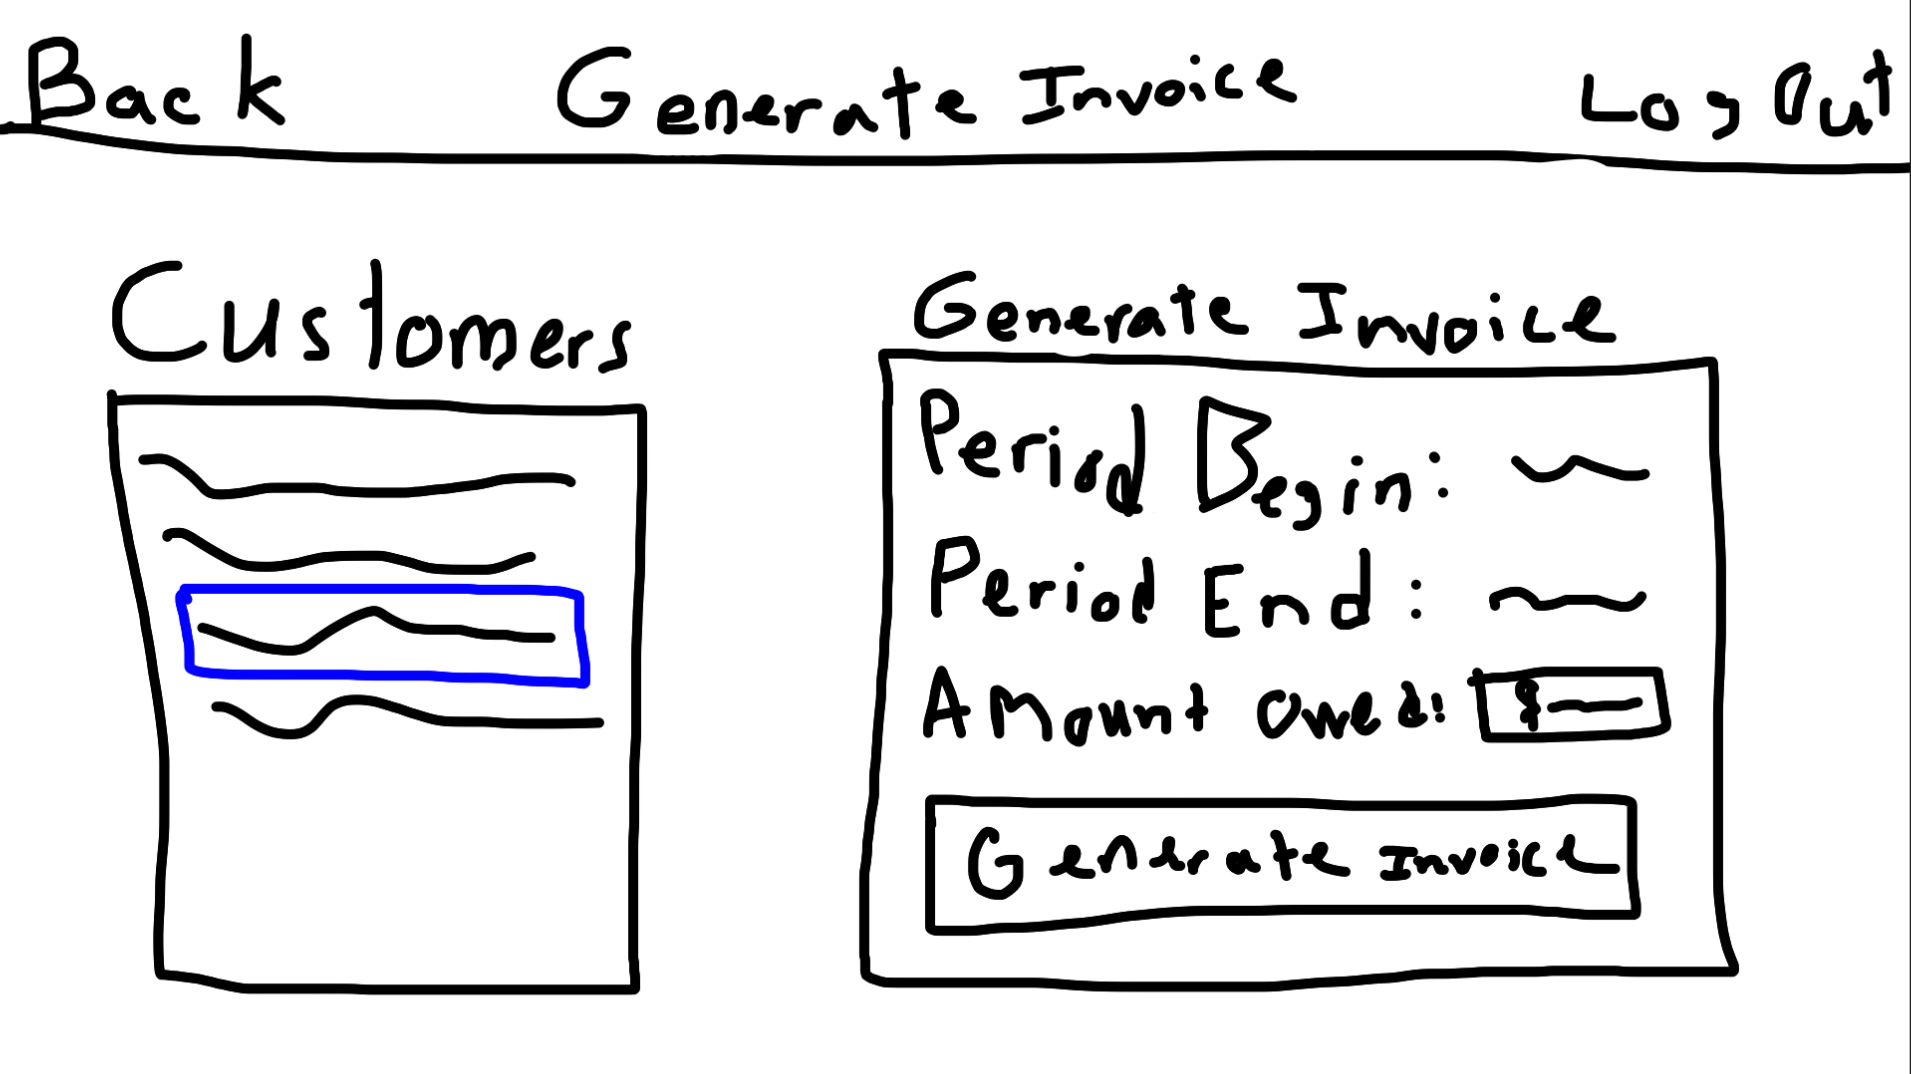 Back Generate Invoice Log Out
Customers
Generate Invoice
Period Begin:
Period End:
Amount owed: $
Generate Invoice